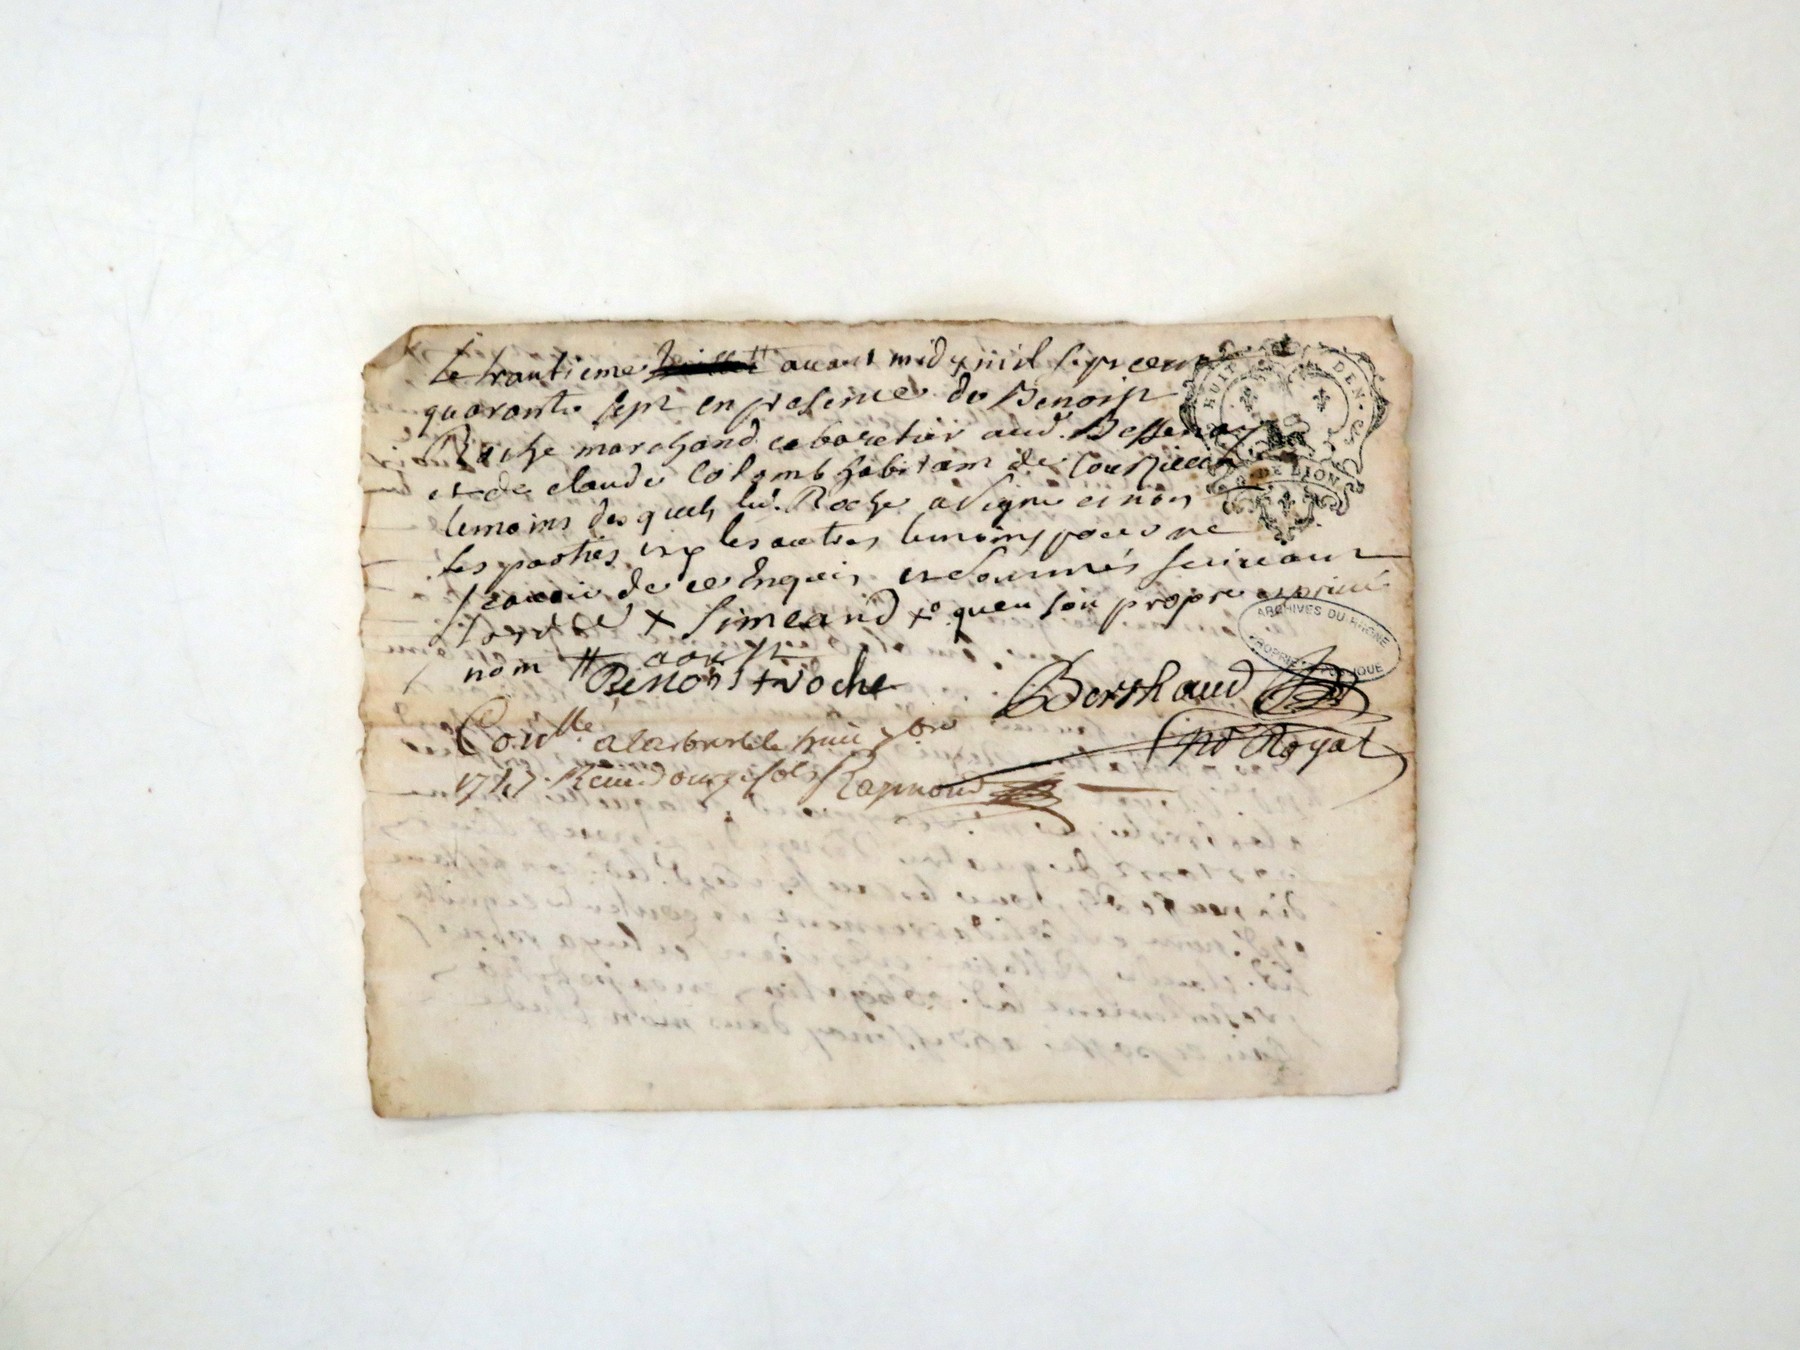 Le trantieme juillet # avant midy mil sept cent
quarante sept en presence de Benoist
Roche marchand cabaretier aud. Bessenay
et de claude Colomb habitant de Courzieu
temoins desquels led. Roche a signe et non
les parties ny les autres temoins pour ne
scavoir de ce Enquis et sommés suivant
l'ord.ce × Simeand ×o qu'en son propre et privé
nom # aoust
Benoist Roche Berthaud
no.re Royal
Con.lle a la bresle le huit 7bre
1747. Receu douze sols Raymond
HUIT DEN.
G. DE LION
ARCHIVES DU RHONE
PROPRIETE PUBLIQUE